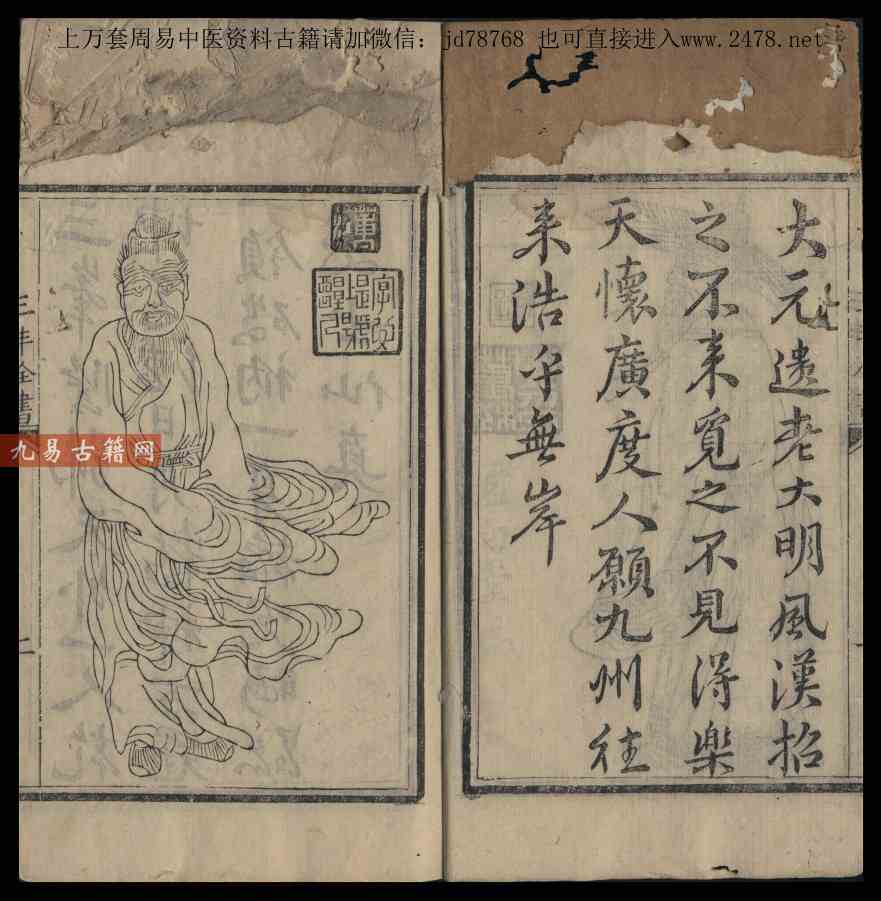 上万套周易中医资料古籍请加微信： jd78768 也可直接进入www.2478.net
大元遗老大明風漢招
之不来覓之不見得樂
天懷廣度人願九州往
来浩乎無岸
九易古籍网